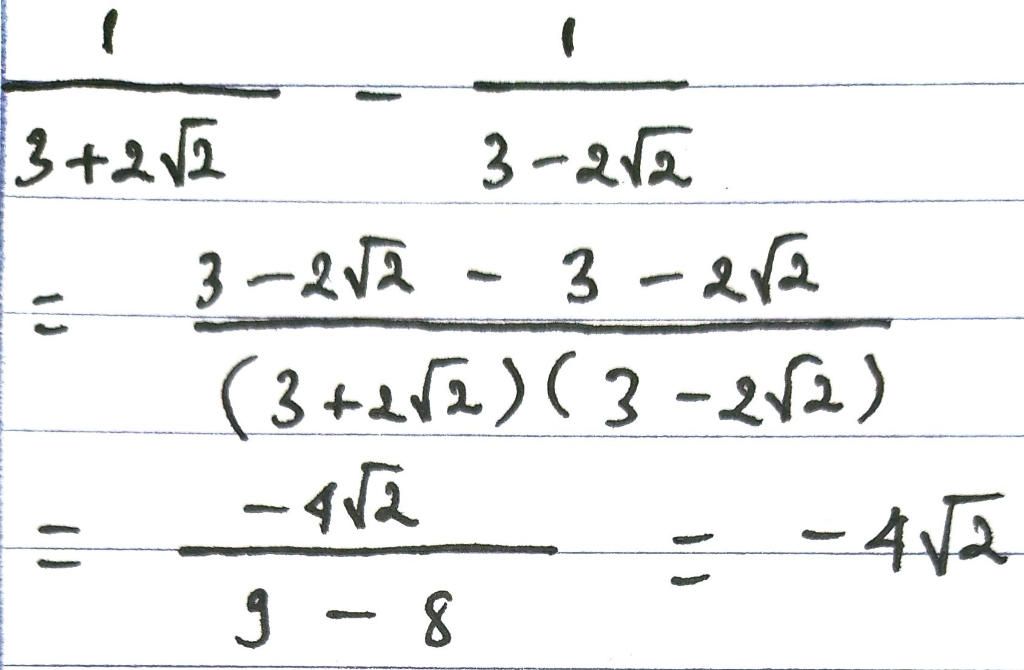 1/(3+2√2) - 1/(3-2√2)
= (3-2√2 - 3-2√2)/((3+2√2)(3-2√2))
= (-4√2)/(9-8) = -4√2